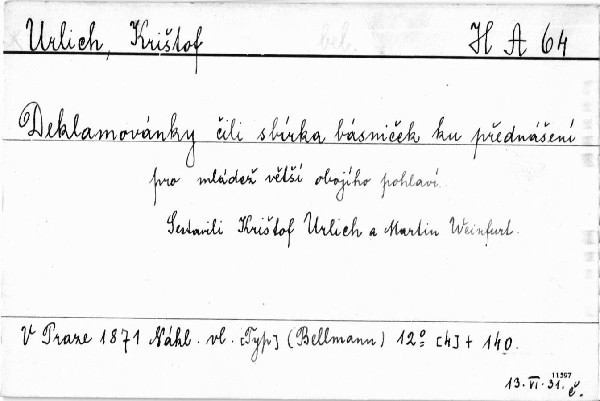 Urlich, Krištof H A 64
Deklamovánky čili sbírka básniček ku přednášení
pro mládež větší obojího pohlaví.
Sestavili Krištof Urlich a Martin Weinfurt.
V Praze 1871 Nákl. vl. [Typ] (Bellmann) 12° [4] + 140.
11357
13. VI. 31. č.